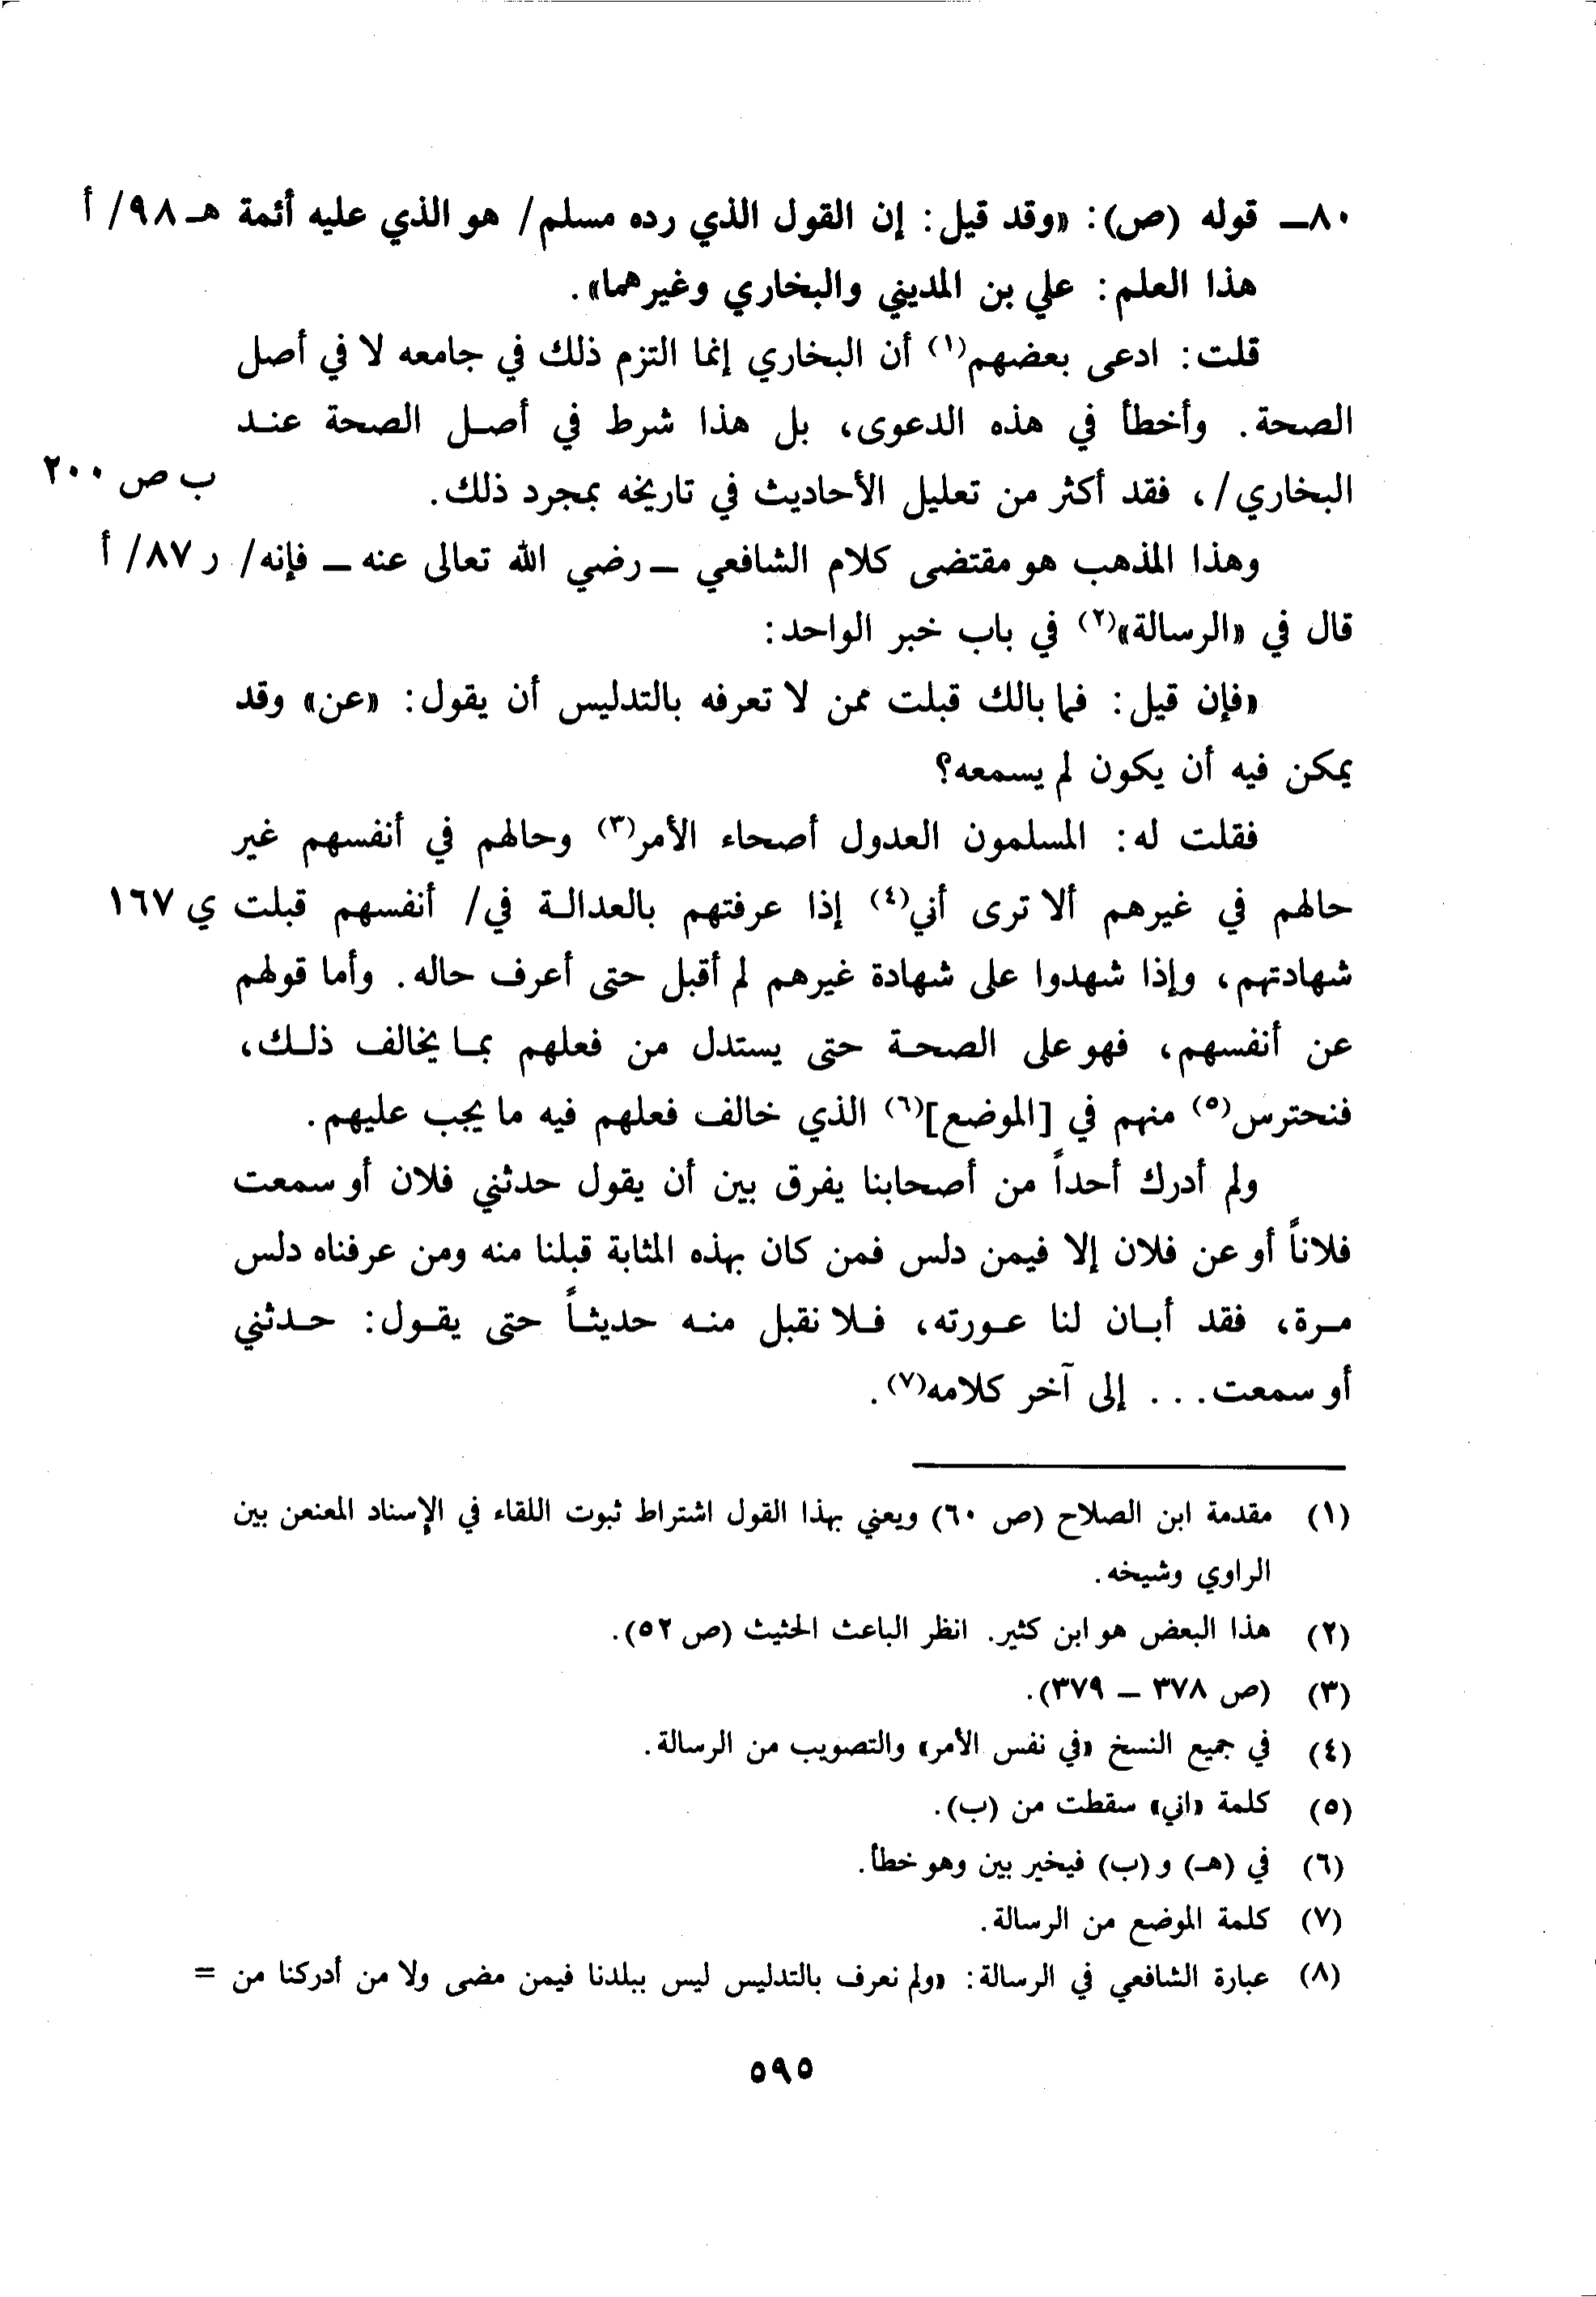 ٨٠ـ قوله (ص): «وقد قيل: إن القول الذي رده مسلم/ هو الذي عليه أئمة هـ ٩٨/ أ
هذا العلم: علي بن المديني والبخاري وغيرهما».
قلت: ادعى بعضهم(١) أن البخاري إنما التزم ذلك في جامعه لا في أصل
الصحة. وأخطأ في هذه الدعوى، بل هذا شرط في أصل الصحة عند
البخاري/، فقد أكثر من تعليل الأحاديث في تاريخه بمجرد ذلك. ب ص ٢٠٠
وهذا المذهب هو مقتضى كلام الشافعي ـ رضي الله تعالى عنه ـ فإنه/ ر ٨٧/ أ
قال في «الرسالة»(٢) في باب خبر الواحد:
«فإن قيل: فما بالك قبلت ممن لا تعرفه بالتدليس أن يقول: «عن» وقد
يمكن فيه أن يكون لم يسمعه؟
فقلت له: المسلمون العدول أصحاء الأمر(٣) وحالهم في أنفسهم غير
حالهم في غيرهم ألا ترى أني(٤) إذا عرفتهم بالعدالة في/ أنفسهم قبلت ي ١٦٧
شهادتهم، وإذا شهدوا على شهادة غيرهم لم أقبل حتى أعرف حاله. وأما قولهم
عن أنفسهم، فهو على الصحة حتى يستدل من فعلهم بما يخالف ذلك،
فنحترس(٥) منهم في [الموضع](٦) الذي خالف فعلهم فيه ما يجب عليهم.
ولم أدرك أحداً من أصحابنا يفرق بين أن يقول حدثني فلان أو سمعت
فلاناً أو عن فلان إلا فيمن دلس فمن كان بهذه المثابة قبلنا منه ومن عرفناه دلس
مرة، فقد أبان لنا عورته، فلا نقبل منه حديثاً حتى يقول: حدثني
أو سمعت... إلى آخر كلامه(٧).
(١) مقدمة ابن الصلاح (ص ٦٠) ويعني بهذا القول اشتراط ثبوت اللقاء في الإسناد المعنعن بين
الراوي وشيخه.
(٢) هذا البعض هو ابن كثير. انظر الباعث الحثيث (ص ٥٢).
(٣) (ص ٣٧٨ ـ ٣٧٩).
(٤) في جميع النسخ «في نفس الأمر» والتصويب من الرسالة.
(٥) كلمة «اني» سقطت من (ب).
(٦) في (هـ) و (ب) فيخير بين وهو خطأ.
(٧) كلمة الموضع من الرسالة.
(٨) عبارة الشافعي في الرسالة: «ولم نعرف بالتدليس ليس ببلدنا فيمن مضى ولا من أدركنا من =
٥٩٥